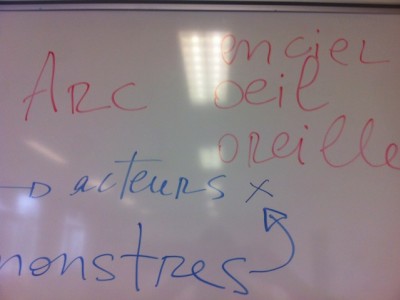 ARC
enciel
oeil
oreille
acteurs x
monstres